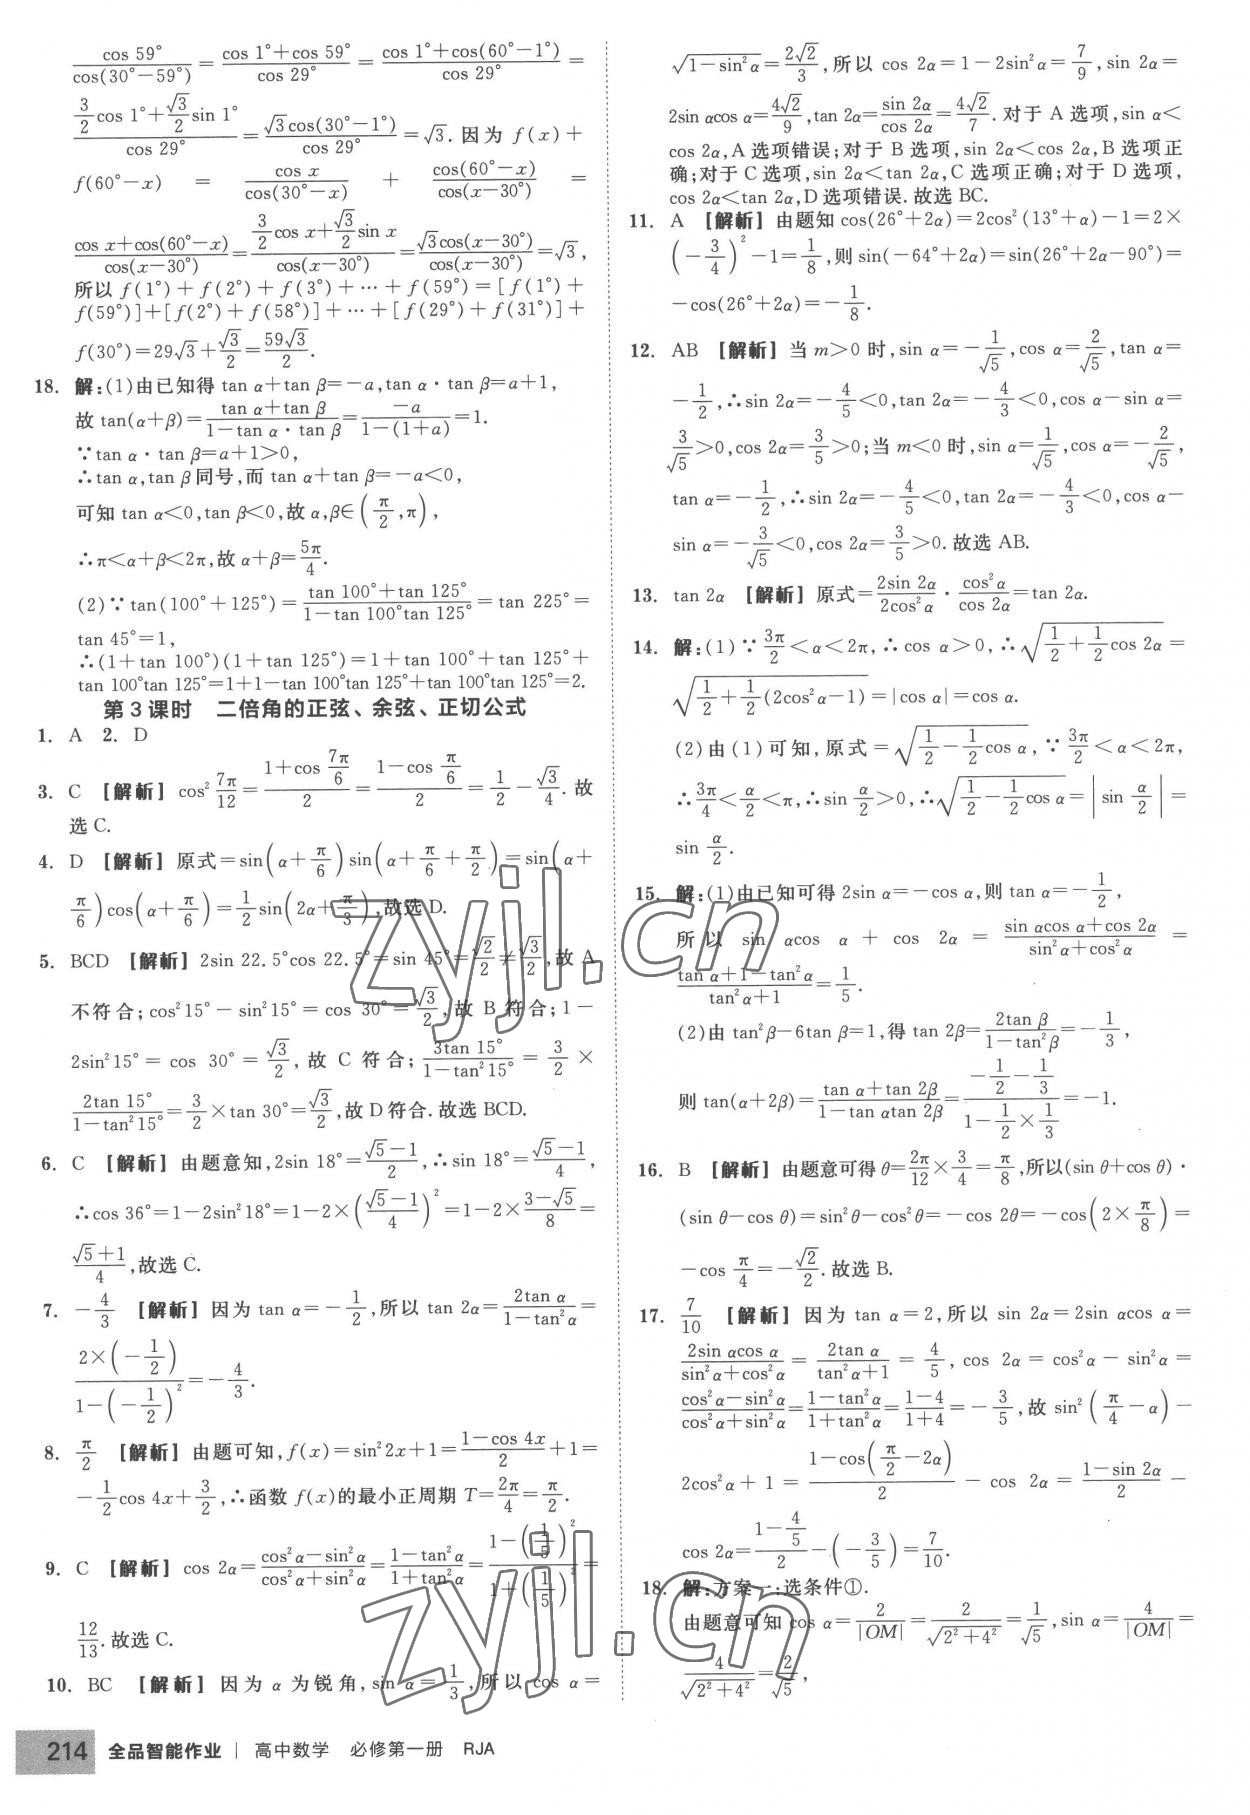 cos 59°/cos(30°−59°)=(cos 1°+cos 59°)/cos 29°=(cos 1°+cos(60°−1°))/cos 29°=
(3/2 cos 1°+√3/2 sin 1°)/cos 29°=√3cos(30°−1°)/cos 29°=√3. 因为 f(x)+
f(60°−x) = cos x/cos(30°−x) + cos(60°−x)/cos(x−30°) =
(cos x+cos(60°−x))/cos(x−30°)=(3/2 cos x+√3/2 sin x)/cos(x−30°)=√3cos(x−30°)/cos(x−30°)=√3,
所以 f(1°)+f(2°)+f(3°)+⋯+f(59°)=[f(1°)+
f(59°)]+[f(2°)+f(58°)]+⋯+[f(29°)+f(31°)]+
f(30°)=29√3+√3/2=59√3/2.
18. 解:(1)由已知得 tan α+tan β=−a,tan α·tan β=a+1,
故 tan(α+β)=(tan α+tan β)/(1−tan α·tan β)=−a/(1−(1+a))=1.
∵tan α·tan β=a+1>0,
∴tan α,tan β同号,而 tan α+tan β=−a<0,
可知 tan α<0,tan β<0,故 α,β∈(π/2,π),
∴π<α+β<2π,故 α+β=5π/4.
(2)∵tan(100°+125°)=(tan 100°+tan 125°)/(1−tan 100°tan 125°)=tan 225°=
tan 45°=1,
∴(1+tan 100°)(1+tan 125°)=1+tan 100°+tan 125°+
tan 100°tan 125°=1+1−tan 100°tan 125°+tan 100°tan 125°=2.
第3课时 二倍角的正弦、余弦、正切公式
1. A 2. D
3. C [解析] cos²7π/12=(1+cos 7π/6)/2=(1−cos π/6)/2=1/2−√3/4. 故
选C.
4. D [解析] 原式=sin(α+π/6)sin(α+π/6+π/2)=sin(α+
π/6)cos(α+π/6)=1/2 sin(2α+π/3),故选D.
5. BCD [解析] 2sin 22.5°cos 22.5°=sin 45°=√2/2≠√3/2,故 A
不符合;cos²15°−sin²15°=cos 30°=√3/2,故 B 符合;1−
2sin²15°=cos 30°=√3/2,故 C 符合;3tan 15°/(1−tan²15°)=3/2×
2tan 15°/(1−tan²15°)=3/2×tan 30°=√3/2,故D符合.故选BCD.
6. C [解析] 由题意知,2sin 18°=(√5−1)/2,∴sin 18°=(√5−1)/4,
∴cos 36°=1−2sin²18°=1−2×((√5−1)/4)²=1−2×(3−√5)/8=
(√5+1)/4,故选C.
7. −4/3 [解析] 因为 tan α=−1/2,所以 tan 2α=2tan α/(1−tan²α)=
2×(−1/2)/(1−(−1/2)²)=−4/3.
8. π/2 [解析] 由题可知,f(x)=sin²2x+1=(1−cos 4x)/2+1=
−1/2 cos 4x+3/2,∴函数 f(x)的最小正周期 T=2π/4=π/2.
9. C [解析] cos 2α=(cos²α−sin²α)/(cos²α+sin²α)=(1−tan²α)/(1+tan²α)=(1−(1/5)²)/(1+(1/5)²)=
12/13.故选C.
10. BC [解析] 因为 α 为锐角,sin α=1/3,所以 cos α=
√(1−sin²α)=2√2/3,所以 cos 2α=1−2sin²α=7/9,sin 2α=
2sin αcos α=4√2/9,tan 2α=sin 2α/cos 2α=4√2/7.对于 A 选项,sin α<
cos 2α,A选项错误;对于 B 选项,sin 2α<cos 2α,B选项正
确;对于C选项,sin 2α<tan 2α,C选项正确;对于D选项,
cos 2α<tan 2α,D选项错误.故选BC.
11. A [解析] 由题知 cos(26°+2α)=2cos²(13°+α)−1=2×
(−3/4)²−1=1/8,则 sin(−64°+2α)=sin(26°+2α−90°)=
−cos(26°+2α)=−1/8.
12. AB [解析] 当 m>0 时,sin α=−1/√5,cos α=2/√5,tan α=
−1/2,∴sin 2α=−4/5<0,tan 2α=−4/3<0,cos α−sin α=
3/√5>0,cos 2α=3/5>0;当 m<0 时,sin α=1/√5,cos α=−2/√5,
tan α=−1/2,∴sin 2α=−4/5<0,tan 2α=−4/3<0,cos α−
sin α=−3/√5<0,cos 2α=3/5>0.故选 AB.
13. tan 2α [解析] 原式=2sin 2α/2cos²α·cos²α/cos 2α=tan 2α.
14. 解:(1)∵3π/2<α<2π,∴cos α>0,∴√(1/2+1/2 cos 2α)=
√(1/2+1/2(2cos²α−1))=|cos α|=cos α.
(2)由(1)可知,原式=√(1/2−1/2 cos α),∵3π/2<α<2π,
∴3π/4<α/2<π,∴sin α/2>0,∴√(1/2−1/2 cos α)=|sin α/2|=
sin α/2.
15. 解:(1)由已知可得 2sin α=−cos α,则 tan α=−1/2,
所以 sin αcos α+cos 2α=(sin αcos α+cos 2α)/(sin²α+cos²α)=
(tan α+1−tan²α)/(tan²α+1)=1/5.
(2)由 tan²β−6tan β=1,得 tan 2β=2tan β/(1−tan²β)=−1/3,
则 tan(α+2β)=(tan α+tan 2β)/(1−tan αtan 2β)=(−1/2−1/3)/(1−1/2×1/3)=−1.
16. B [解析] 由题意可得 θ=2π/12×3/4=π/8,所以(sin θ+cos θ)·
(sin θ−cos θ)=sin²θ−cos²θ=−cos 2θ=−cos(2×π/8)=
−cos π/4=−√2/2.故选B.
17. 7/10 [解析] 因为 tan α=2,所以 sin 2α=2sin αcos α=
2sin αcos α/(sin²α+cos²α)=2tan α/(tan²α+1)=4/5,cos 2α=cos²α−sin²α=
(cos²α−sin²α)/(cos²α+sin²α)=(1−tan²α)/(1+tan²α)=(1−4)/(1+4)=−3/5,故 sin²(π/4−α)−
2cos²α+1=(1−cos(π/2−2α))/2−cos 2α=(1−sin 2α)/2−
cos 2α=(1−4/5)/2−(−3/5)=7/10.
18. 解:方案一:选条件①.
由题意可知 cos α=2/|OM|=2/√(2²+4²)=1/√5,sin α=4/|OM|=
4/√(2²+4²)=2/√5,
214 全品智能作业 | 高中数学 必修第一册 RJA
zyjl.cn
zyjl.cn